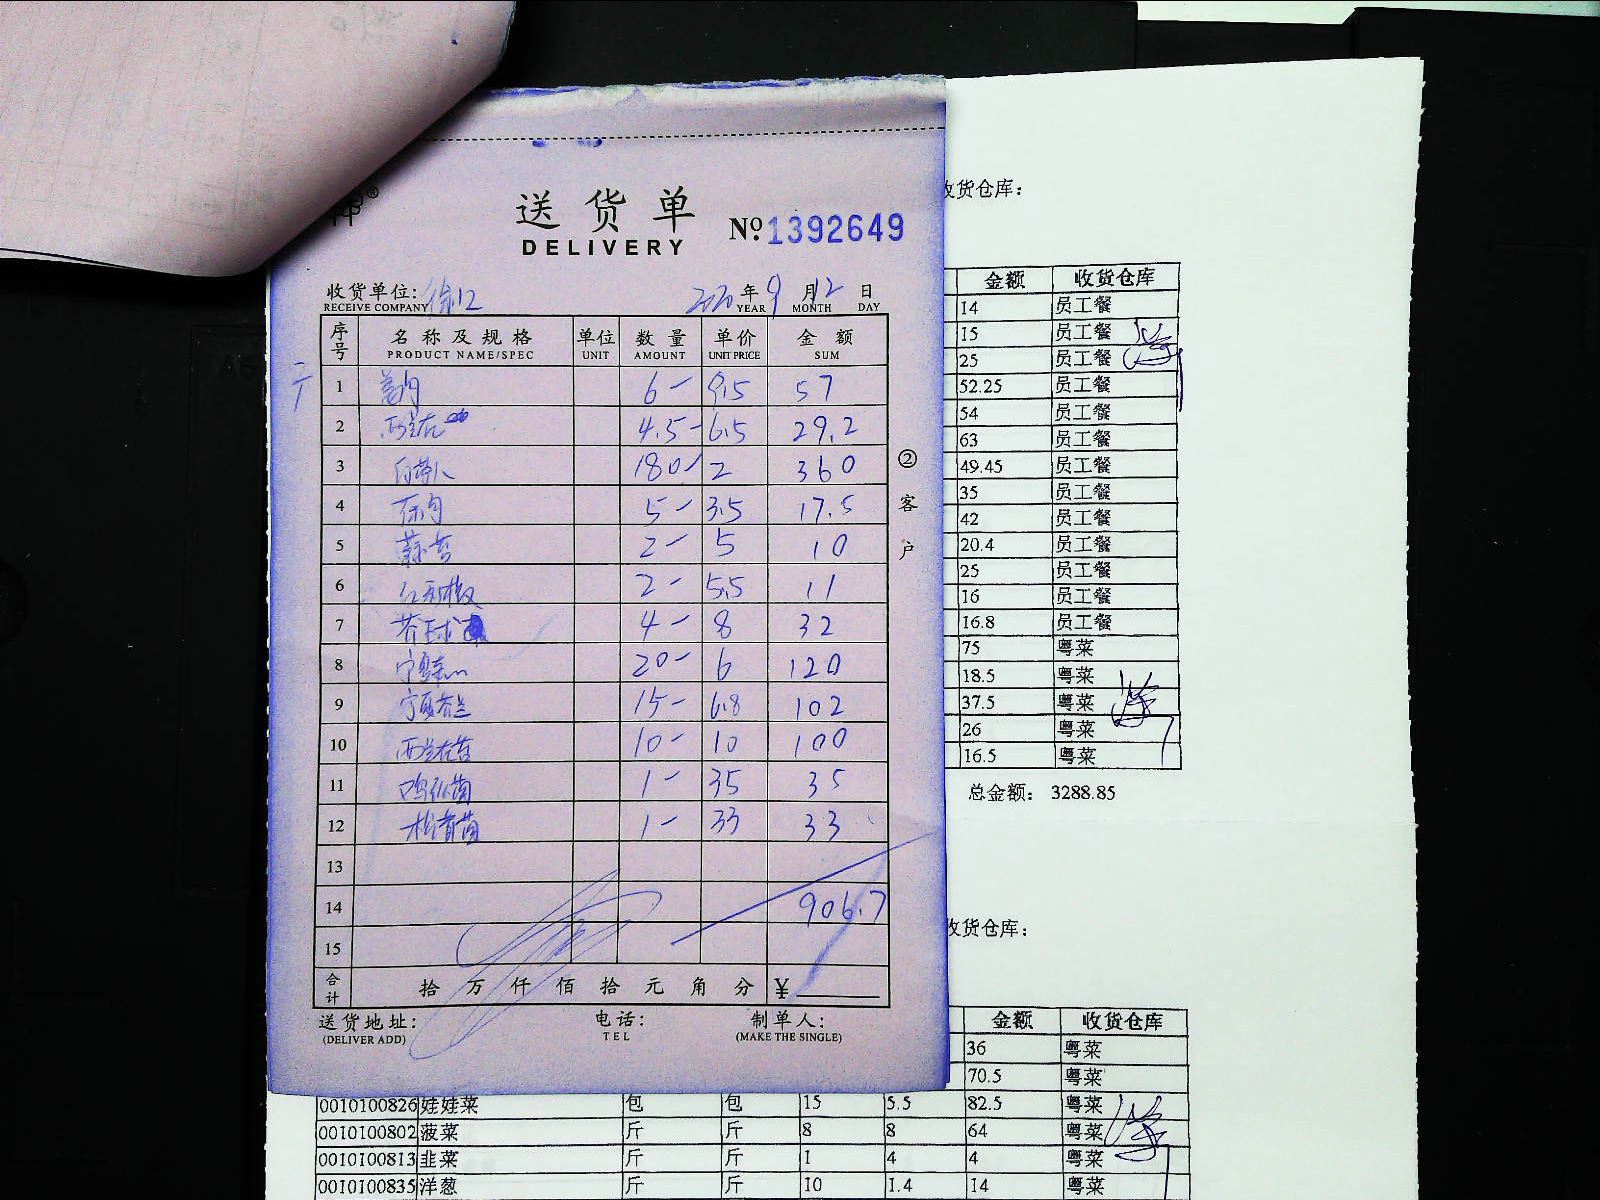 送货单
DELIVERY
№ 1392649
收货仓库：
收货单位:
RECEIVE COMPANY
2020年9月12日
YEAR MONTH DAY
序号 名称及规格 单位 数量 单价 金额
PRODUCT NAME/SPEC UNIT AMOUNT UNIT PRICE SUM
1 姜肉 6- 9.5 57
2 西兰花 4.5- 6.5 29.2
3 180- 2 360
4 5- 3.5 17.5
5 蒜苔 2- 5 10
6 红利椒 2- 5.5 11
7 4- 8 32
8 宁夏菜心 20- 6 120
9 宁夏芥兰 15- 6.8 102
10 西兰花苗 10- 10 100
11 1- 35 35
12 1- 33 33
13
14 906.7
15
合计 拾万仟佰拾元角分 ¥
送货地址: 电话: 制单人:
(DELIVER ADD) TEL (MAKE THE SINGLE)
②客户
金额 收货仓库
14 员工餐
15 员工餐
25 员工餐
52.25 员工餐
54 员工餐
63 员工餐
49.45 员工餐
35 员工餐
42 员工餐
20.4 员工餐
25 员工餐
16 员工餐
16.8 员工餐
75 粤菜
18.5 粤菜
37.5 粤菜
26 粤菜
16.5 粤菜
总金额： 3288.85
收货仓库：
金额 收货仓库
36 粤菜
70.5 粤菜
0010100826 娃娃菜 包 包 15 5.5 82.5 粤菜
0010100802 菠菜 斤 斤 8 8 64 粤菜
0010100813 韭菜 斤 斤 1 4 4 粤菜
0010100835 洋葱 斤 斤 10 1.4 14 粤菜